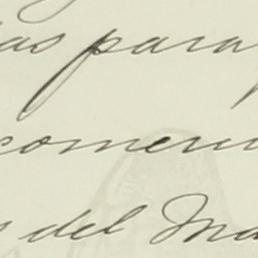 as para
comen
del Ma